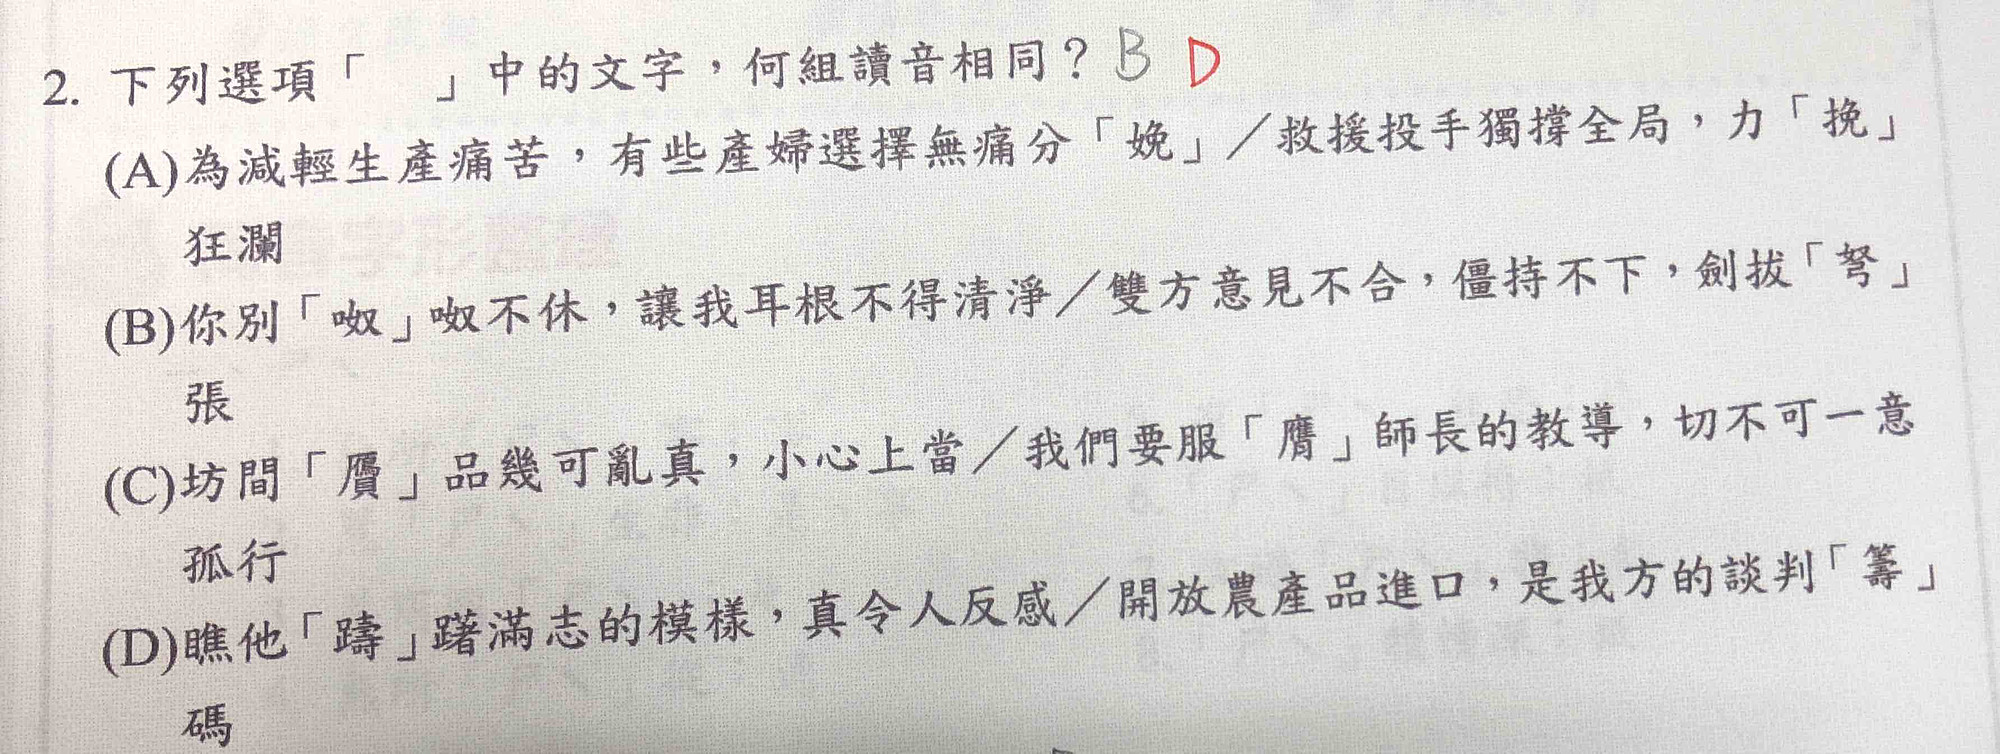 2. 下列選項「　」中的文字，何組讀音相同？B D
(A)為減輕生產痛苦，有些產婦選擇無痛分「娩」／救援投手獨撐全局，力「挽」
狂瀾
(B)你別「呶」呶不休，讓我耳根不得清淨／雙方意見不合，僵持不下，劍拔「弩」
張
(C)坊間「贗」品幾可亂真，小心上當／我們要服「膺」師長的教導，切不可一意
孤行
(D)瞧他「躊」躇滿志的模樣，真令人反感／開放農產品進口，是我方的談判「籌」
碼